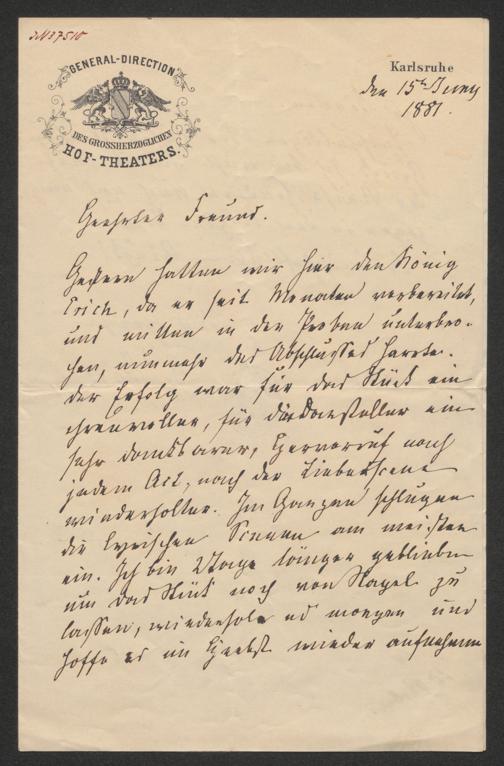 JN 37510
GENERAL-DIRECTION
DES GROSSHERZOGLICHEN
HOF-THEATERS.
Karlsruhe
den 15ten Juny
1881.
Geehrter Freund.
Gestern hatten wir hier den König
Erich, da er seit Monaten vorbereitet,
und mitten in den Proben unterbro-
chen, nunmehr des Abschlusses harrte.
Der Erfolg war für das Stück ein
ehrenvoller, für die Darsteller ein
sehr dankbarer, Hervorruf nach
jedem Act, nach der Liebesscene
wiederholter. Im Ganzen schlugen
die lyrischen Scenen am meisten
ein. Ich bin 2 Tage länger geblieben
um das Stück noch vom Stapel zu
lassen, wiederhole es morgen und
hoffe es im Herbst wieder aufnehmen